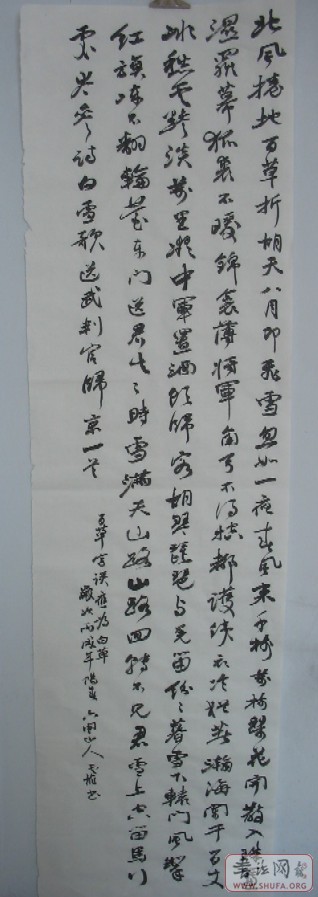 北風捲地百草折胡天八月即飛雪忽如一夜春風來千樹萬樹梨花開散入珠簾
濕羅幕狐裘不暖錦衾薄將軍角弓不得控都護鐵衣冷猶著瀚海闌干百丈
冰愁雲黲淡萬里凝中軍置酒飲歸客胡琴琵琶與羌笛紛々暮雪下轅門風掣
紅旗凍不翻輪臺東門送君去々時雪滿天山路山路回轉不見君雪上空留馬行
處岑參詩白雪歌送武判官歸京一首
百草字誤應為白草
歲次丙戌年陽春 山人 書
WWW.SHUFA.ORG